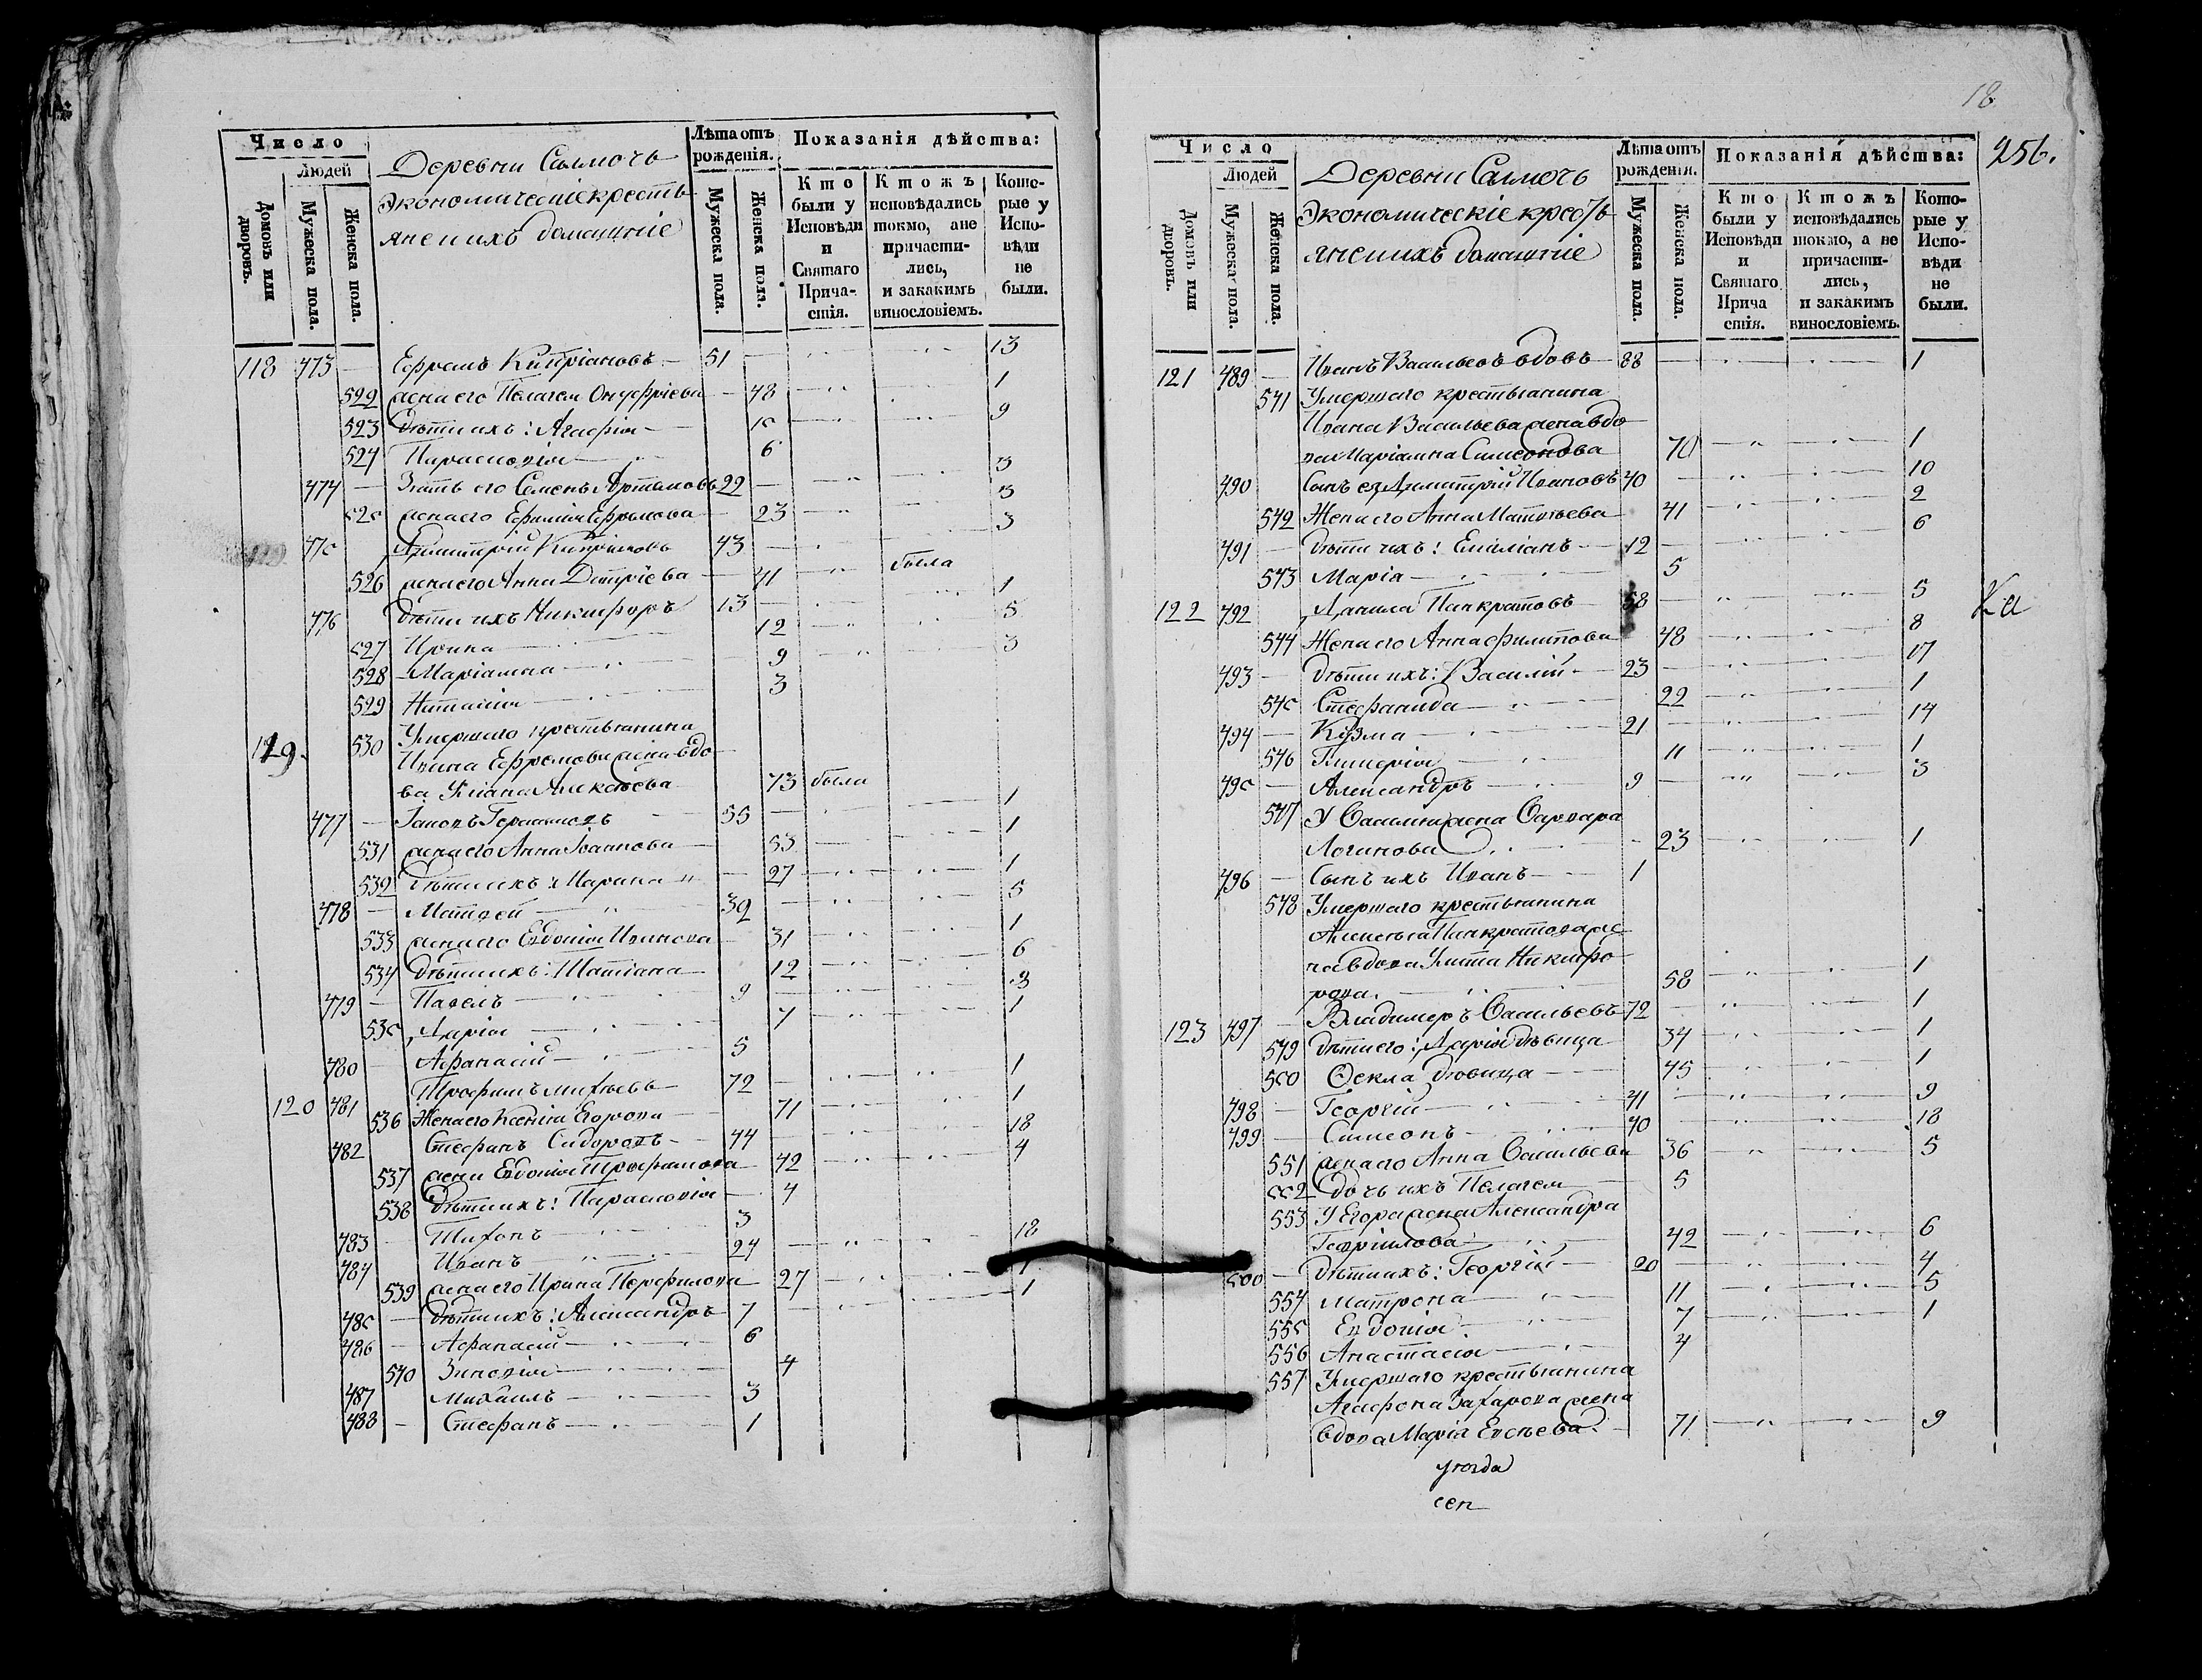 Число
Людей
Домовъ или дворовъ.
Мужеска пола.
Женска пола.
Деревни Салмочь
Экономическіе кресть
яне и ихъ домашніе
Лѣта отъ рожденія.
Мужеска пола.
Женска пола.
Показанія дѣйства:
Кто были у Исповѣди и Святаго Причастія.
Ктожъ исповѣдались токмо, а не причастились, и закакимъ винословіемъ.
Которые у Исповѣди не были.
118 473 — Ефремъ Кипріановъ — 51 — 13
522 жена его Пелагея Онуфріева — 48 — 1
523 дѣти ихъ: Агафія — 15 — 9
524 Парасковія — 6
474 — Зять его Семенъ Артамовъ 22 — 3
525 жена его Ефимія Ефремова — 23 — 3
475 Димитрій Кипріановъ 43 — 3
526 жена его Анна Дмтріева — 41 — была
476 дѣти ихъ Никифоръ 13 — 1
527 Ирина — 12 — 5
528 Маріамна — 9 — 3
529 Наталія — 3
119. 530 Умершаго крестьянина
Ивана Ефремова жена вдо
ва Уліана Алексѣева 73 была
477 — Іаковъ Герасимовъ 55 — 1
531 жена его Анна Іоаннова — 53 — 1
532 дѣти ихъ: Марина — 27 — 1
478 — Матвей — 32 — 5
533 жена его Евдокія Иванова — 31 — 1
534 дѣти ихъ: Татіана — 12 — 6
479 — Павелъ — 9 — 3
535 Дарія — 7 — 1
480 — Афанасій — 5
120 481 Трофимъ Михѣевъ — 72 — 1
536 Жена его Ксенія Егорова — 71 — 1
482 Стефанъ Сидоровъ — 44 — 18
537 жена Евдокія Трофимова — 42 — 4
538 дѣти ихъ: Парасковія — 4
483 — Тихонъ — 3
484 Иванъ — 24 — 18
539 жена его Ирина Перфилова — 27 — 1
485 — дѣти ихъ: Александръ — 7 — 1
486 — Афанасій — 6
540 Зиновія — 4
487 Михаилъ — 3
488 — Стефанъ — 1
18
256.
Число
Людей
Домовъ или дворовъ.
Мужеска пола.
Женска пола.
Деревни Салмочь
Экономическіе кресть
яне и ихъ домашніе
Лѣта отъ рожденія.
Мужеска пола.
Женска пола.
Показанія дѣйства:
Кто были у Исповѣди и Святаго Причастія.
Ктожъ исповѣдались токмо, а не причастились, и закакимъ винословіемъ.
Которые у Исповѣди не были.
121 489 — Иванъ Васильевъ вдовъ — 88 — 1
541 Умершаго крестьянина
Ивана Васильева жена вдо
ва Маріамна Симеонова 70 — 1
490 Сынъ ея Димитрій Ивановъ 40 — 10
542 Жена его Анна Матвѣева — 41 — 2
491 — дѣти ихъ: Емиліанъ — 12 — 6
543 Марія — 5
122 492 Данила Панкратовъ — 58 — 5
544 Жена его Анна Филипова — 48 — 8
Ка
493 — дѣти ихъ: Василій — 23 — 17
545 Стефанида — 22 — 1
494 — Кузма — 21 — 14
546 Гликерія — 11 — 1
495 — Александръ — 9 — 3
547 У Василія жена Варвара
Логинова — 23 — 1
496 — Сынъ ихъ Иванъ — 1
548 Умершаго крестьянина
Алексѣя Панкратова же
на вдова Улита Никифо
рова. 58 — 1
123 497 — Владимеръ Васильевъ 72 — 1
549 дѣти его: Дарія дѣвица 34 — 1
550 Ѳекла дѣвица — 45 — 1
498 — Георгій — 41 — 9
499 — Симеонъ — 40 — 18
551 жена его Анна Васильева 36 — 5
552 дочь ихъ Пелагея — 5
553 У Егора жена Александра
Гаврилова — 42 — 6
500 — дѣти ихъ: Георгій — 20 — 4
554 Матрона — 11 — 5
555 Евдокія — 7 — 1
556 Анастасія — 4
557 Умершаго крестьянина
Агафона Захарова жена
вдова Марія Евсѣева — 71 — 9
уѣзда